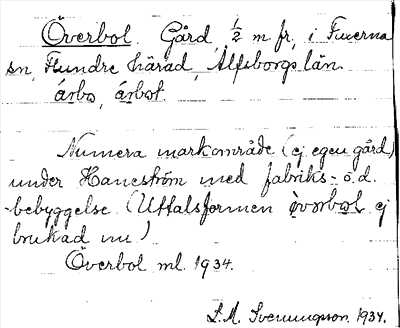 Överbol. Gård, 1/2 m fr, i Fuxerna
sn, Flundre härad, Älfsborgs län.
årbo, årbot
Numera markområde (ej egen gård)
under Haneström med fabriks- o.d.
-bebyggelse (Uttalsformen ej
brukad nu)
Överbol ml. 1934.
S.M. Svenungson 1934.